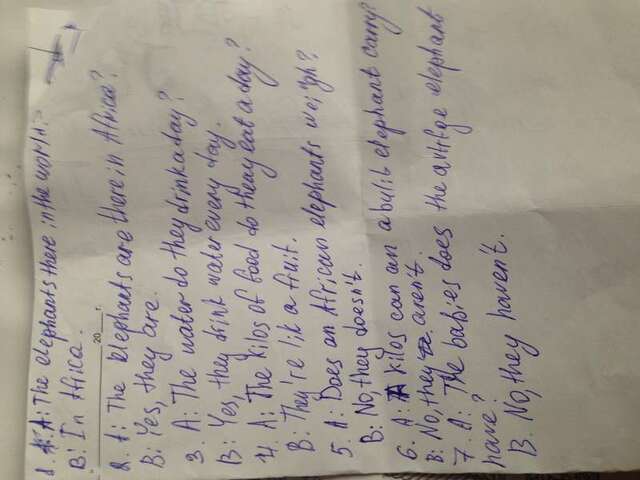 1. A: The elephants there in the world?
B: In Africa.
20 г.
2. A: The elephants are there in Africa?
B: Yes, they are.
3. A: The water do they drink a day?
B: Yes, they drink water every day.
4. A: The kilos of food do they eat a day?
B: They're lik a fruit.
5. A: Does an African elephants weigh?
B: No, they doesn't.
6. A: kilos can an a bulib elephant carry?
B: No, they aren't.
7. A: The babies does the avirge elephant
have?
B. No, they haven't.